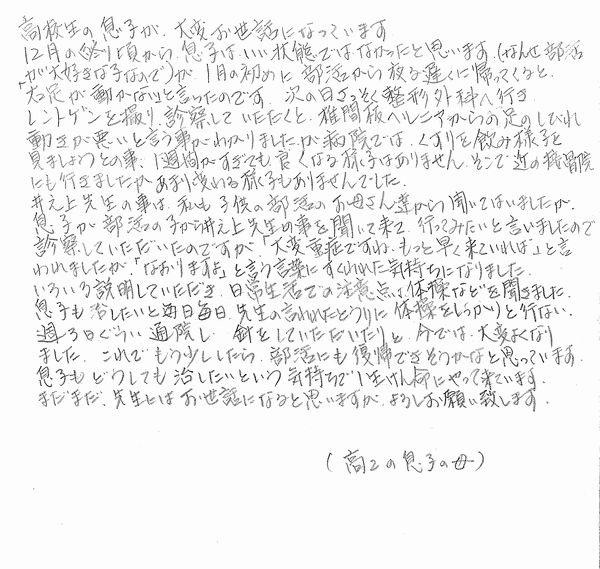 高校生の息子が、大変お世話になっています
12月の終り頃から、息子は、いい状態ではなかったと思います。(なんせ部活
が大好きな子なので)が、1月の初めに部活から夜遅くに帰ってくると、
右足が動かないと言ったのです。次の日さっそく整形外科へ行き
レントゲンを撮り、診察していただくと、椎間板ヘルニアからの足のしびれ
動きが悪いと言う事がわかりましたが病院では、くすりを飲み様子を
見ましょうとの事、1週間がすぎても良くなる様子はありません。そこで近の接骨院
にも行きましたがあまり変わる様子もありませんでした。
井え上先生の事は、私も子供の部活のお母さん達から聞いてはいましたが、
息子が部活の子から井え上先生の事を聞いて来て、行ってみたいと言いましたので
診察していただいたのですが、「大変重症ですね、もっと早く来ていれば」と言
われましたが、「なおりますよ」と言う言葉にすくわれた気持ちになりました。
いろいろ説明していただき、日常生活での注意点、体操などを聞きました。
息子も治したいと毎日毎日、先生の言われたとうりに体操をしっかりと行ない
週3日ぐらい通院し、針をしていただいたりと、今では、大変よくなり
ました。これでもう少ししたら、部活にも復帰できそうかなと思っています。
息子もどうしても治したいという気持ちで1生けん命にやって来ています。
まだまだ、先生とはお世話になると思いますが、よろしくお願い致します。
(高2の息子の母)